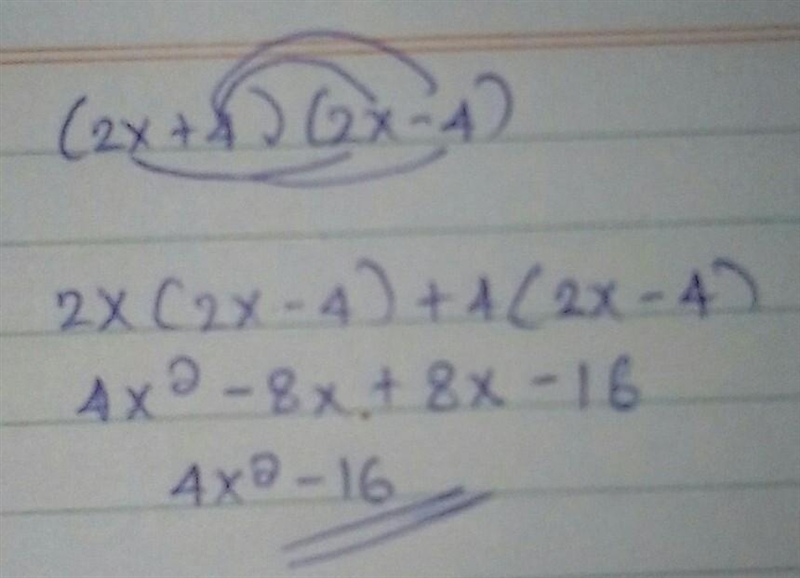 (2x+4)(2x-4)
2x(2x-4)+4(2x-4)
4x²-8x+8x-16
4x²-16